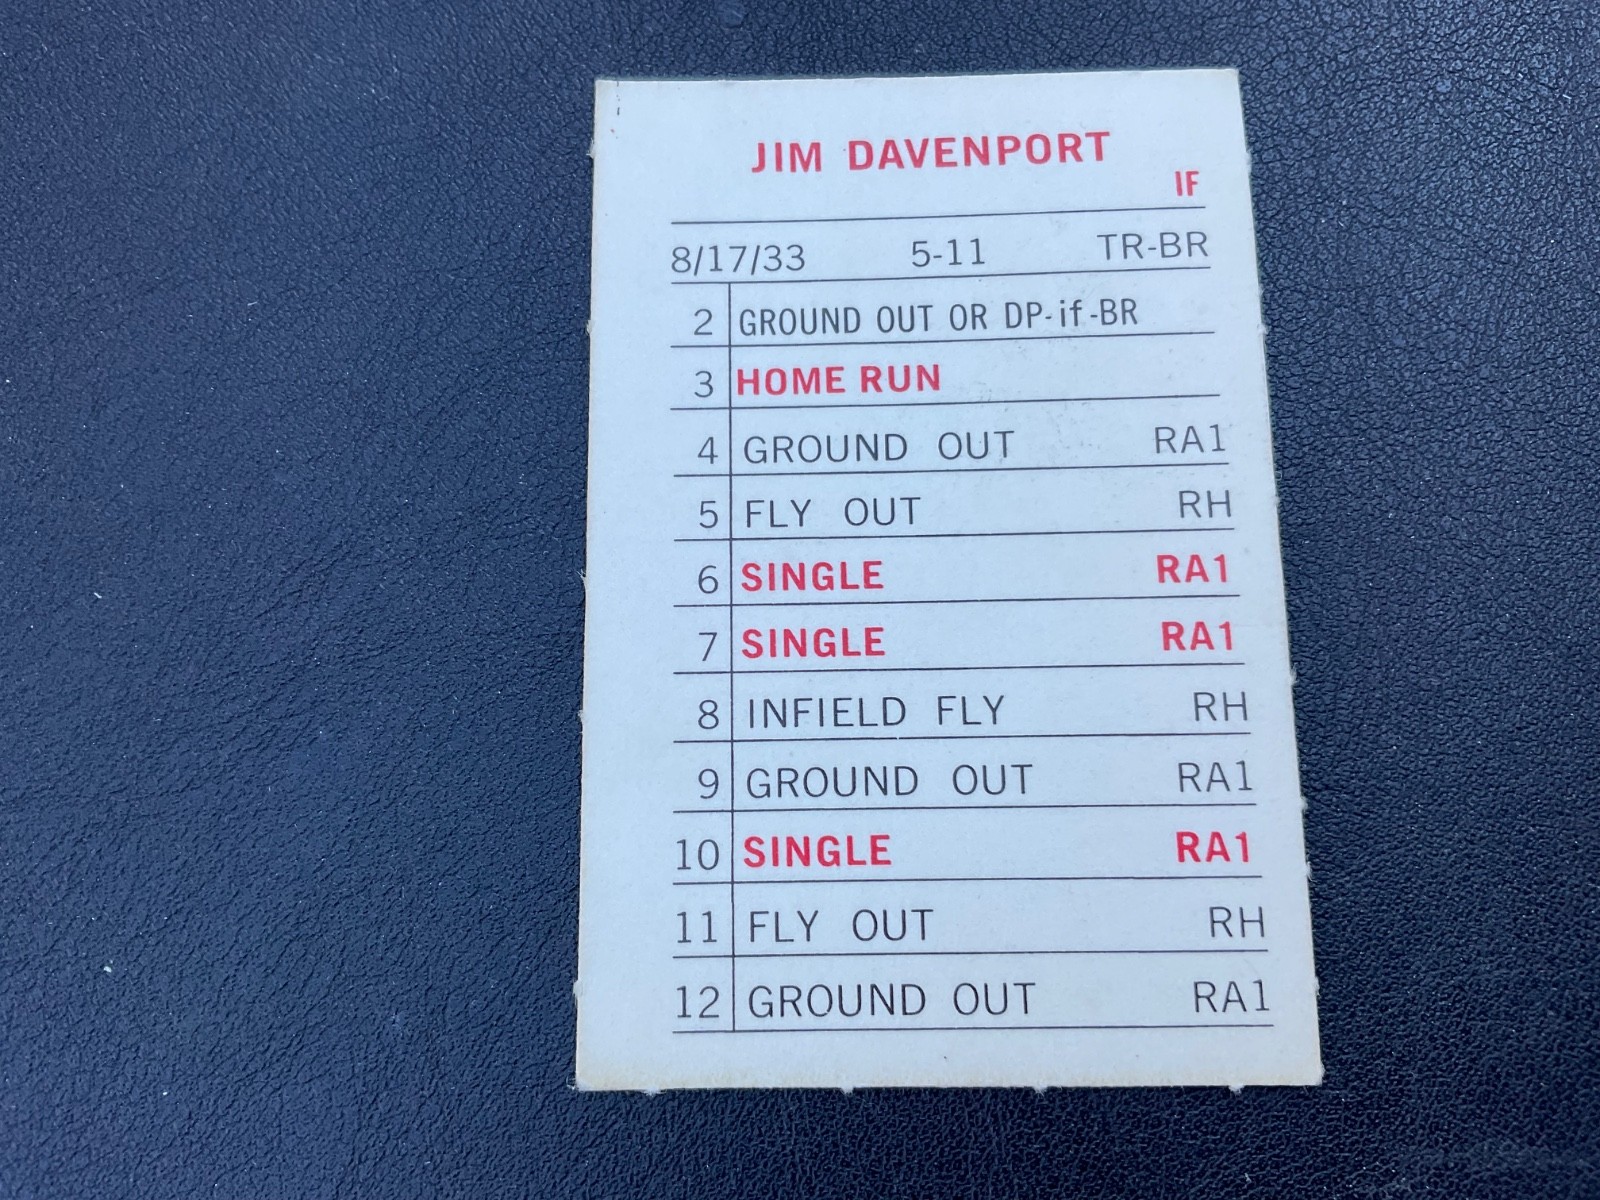 JIM DAVENPORT
IF
8/17/33 5-11 TR-BR
2 GROUND OUT OR DP-if-BR
3 HOME RUN
4 GROUND OUT RA1
5 FLY OUT RH
6 SINGLE RA1
7 SINGLE RA1
8 INFIELD FLY RH
9 GROUND OUT RA1
10 SINGLE RA1
11 FLY OUT RH
12 GROUND OUT RA1